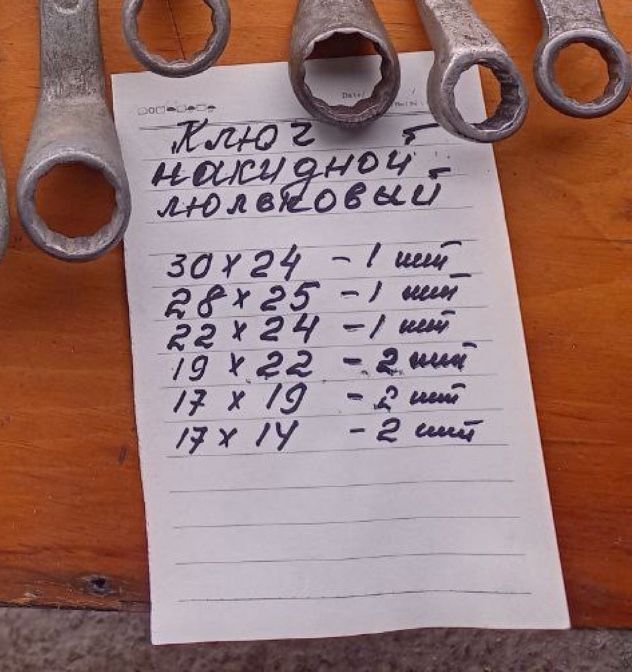 Date/
Ключ
накидной
люльковый
30 x 24 - 1 шт
28 x 25 - 1 шт
22 x 24 - 1 шт
19 x 22 - 2 шт
17 x 19 - 2 шт
17 x 14 - 2 шт